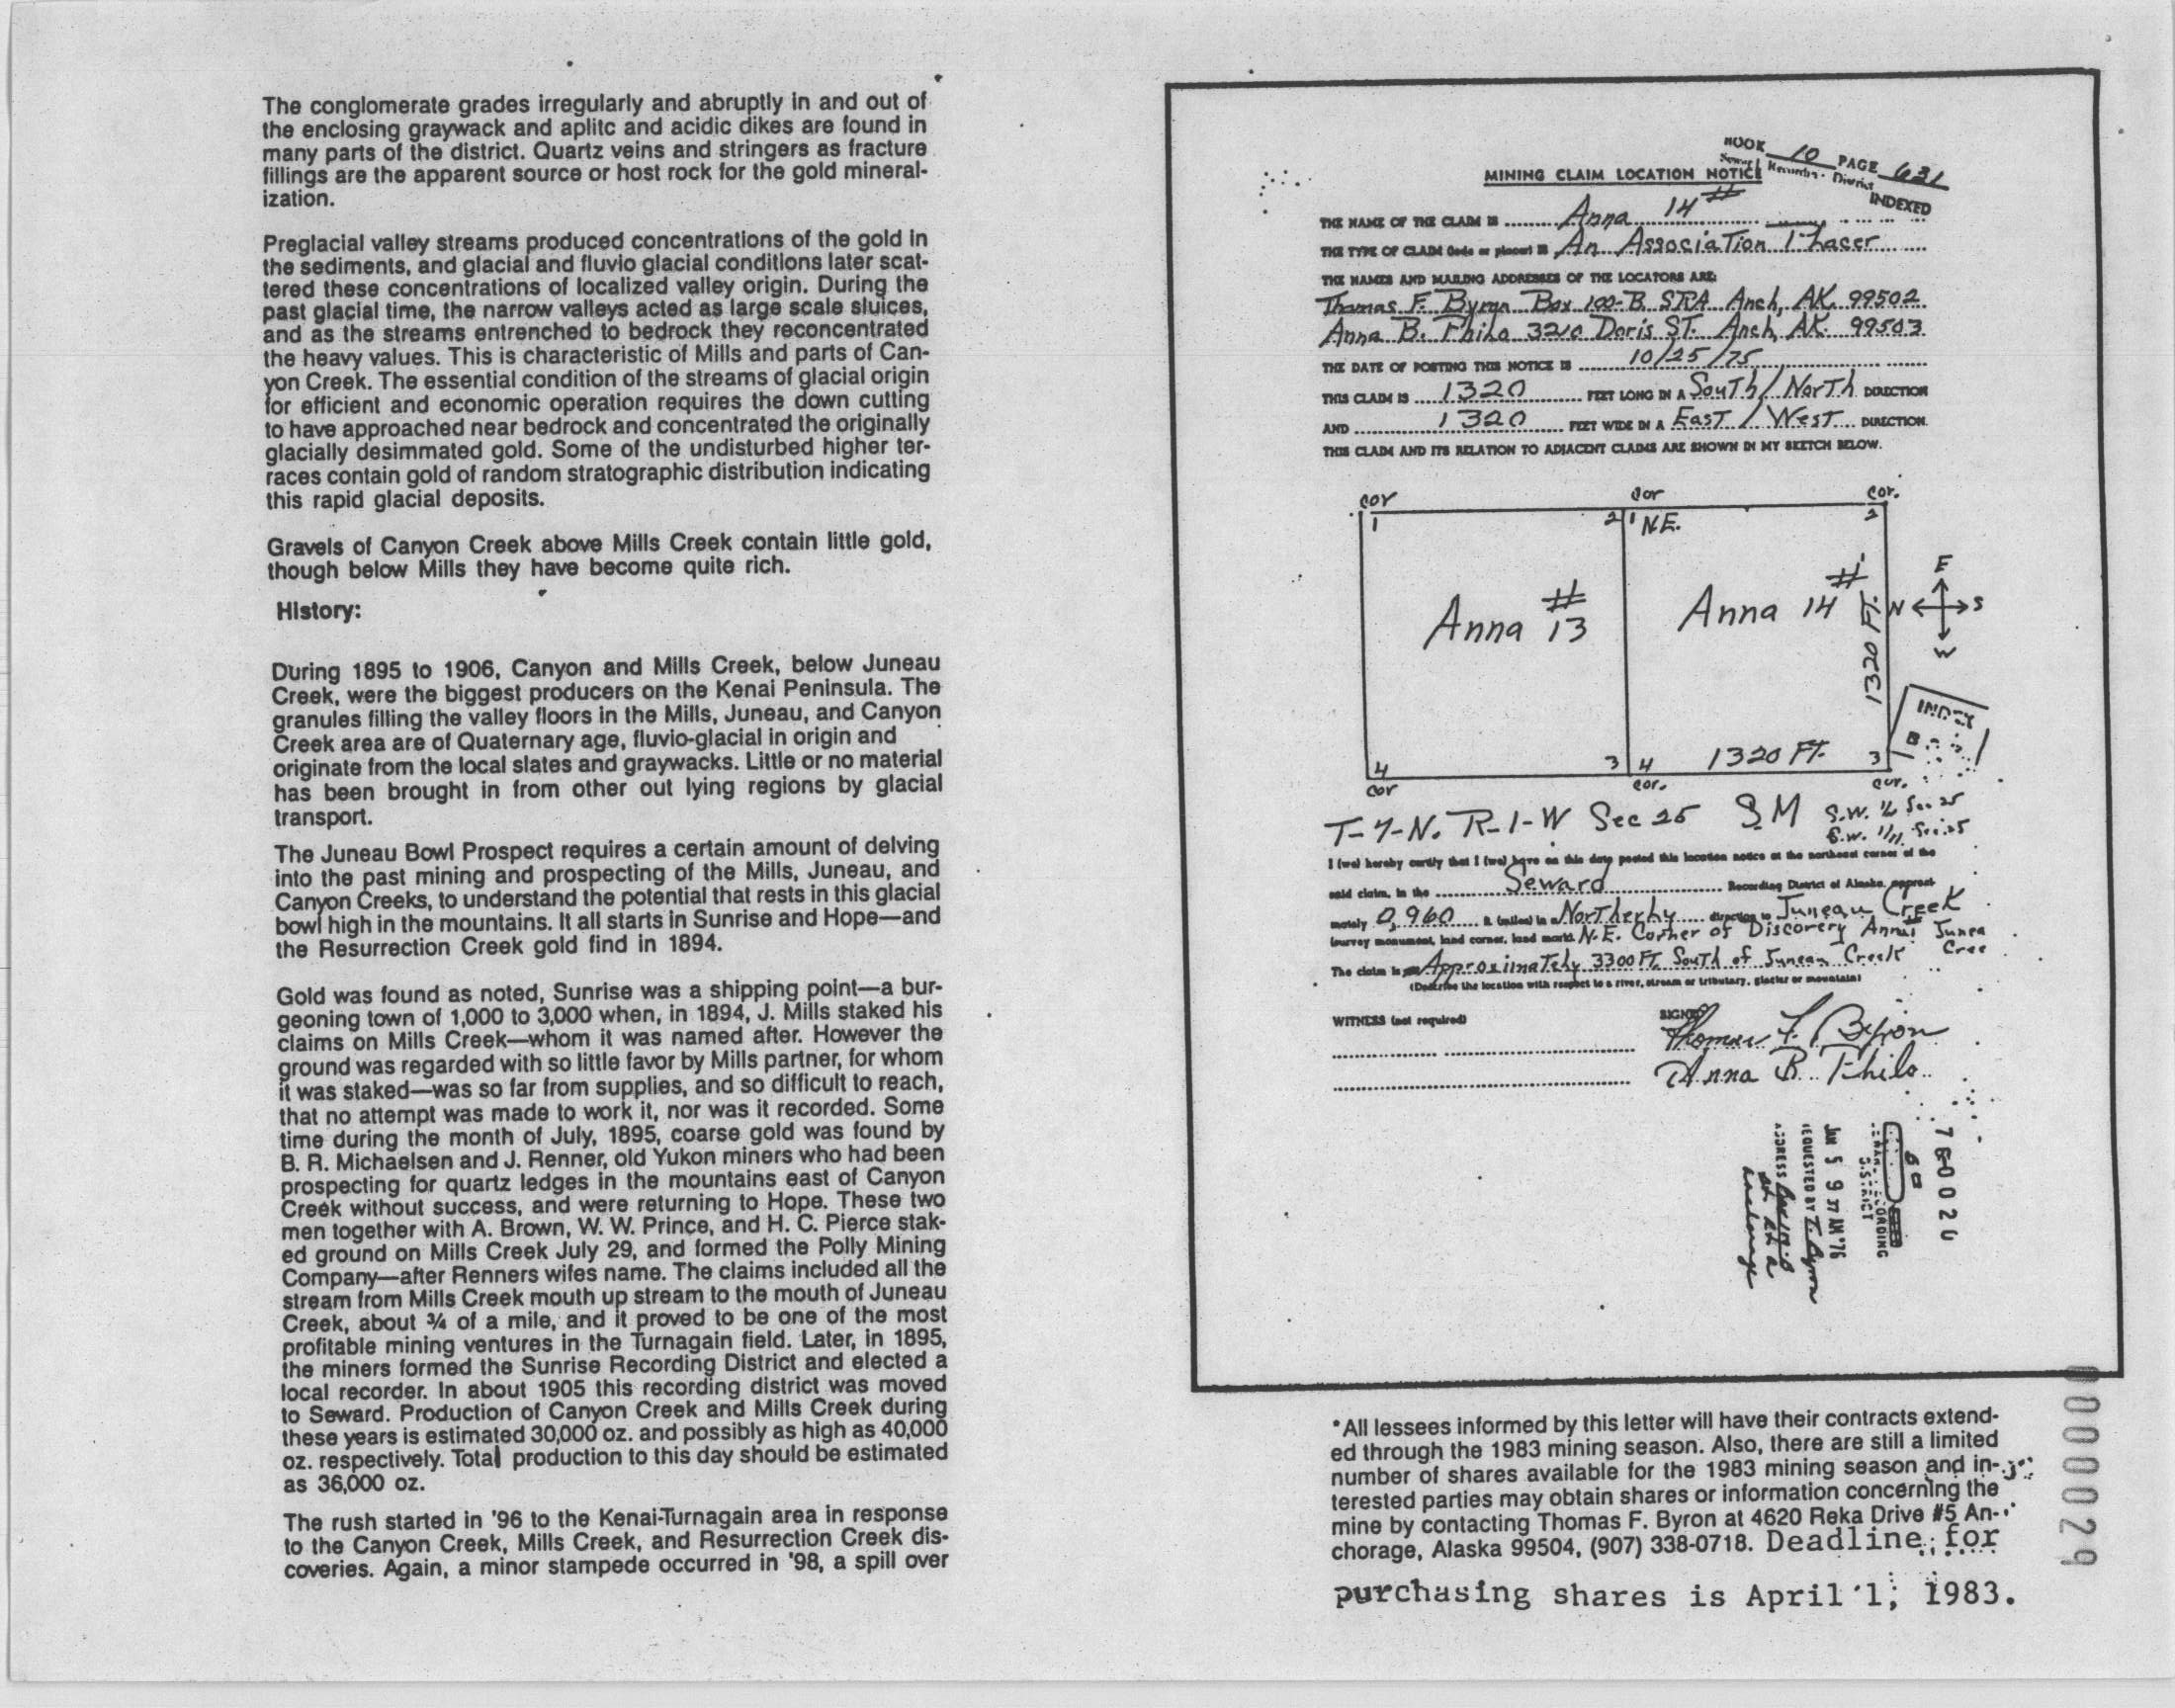 The conglomerate grades irregularly and abruptly in and out of
the enclosing graywack and aplitc and acidic dikes are found in
many parts of the district. Quartz veins and stringers as fracture
fillings are the apparent source or host rock for the gold mineral-
ization.
Preglacial valley streams produced concentrations of the gold in
the sediments, and glacial and fluvio glacial conditions later scat-
tered these concentrations of localized valley origin. During the
past glacial time, the narrow valleys acted as large scale sluices,
and as the streams entrenched to bedrock they reconcentrated
the heavy values. This is characteristic of Mills and parts of Can-
yon Creek. The essential condition of the streams of glacial origin
for efficient and economic operation requires the down cutting
to have approached near bedrock and concentrated the originally
glacially desimmated gold. Some of the undisturbed higher ter-
races contain gold of random stratographic distribution indicating
this rapid glacial deposits.
Gravels of Canyon Creek above Mills Creek contain little gold,
though below Mills they have become quite rich.
History:
During 1895 to 1906, Canyon and Mills Creek, below Juneau
Creek, were the biggest producers on the Kenai Peninsula. The
granules filling the valley floors in the Mills, Juneau, and Canyon
Creek area are of Quaternary age, fluvio-glacial in origin and
originate from the local slates and graywacks. Little or no material
has been brought in from other out lying regions by glacial
transport.
The Juneau Bowl Prospect requires a certain amount of delving
into the past mining and prospecting of the Mills, Juneau, and
Canyon Creeks, to understand the potential that rests in this glacial
bowl high in the mountains. It all starts in Sunrise and Hope—and
the Resurrection Creek gold find in 1894.
Gold was found as noted, Sunrise was a shipping point—a bur-
geoning town of 1,000 to 3,000 when, in 1894, J. Mills staked his
claims on Mills Creek—whom it was named after. However the
ground was regarded with so little favor by Mills partner, for whom
it was staked—was so far from supplies, and so difficult to reach,
that no attempt was made to work it, nor was it recorded. Some
time during the month of July, 1895, coarse gold was found by
B. R. Michaelsen and J. Renner, old Yukon miners who had been
prospecting for quartz ledges in the mountains east of Canyon
Creek without success, and were returning to Hope. These two
men together with A. Brown, W. W. Prince, and H. C. Pierce stak-
ed ground on Mills Creek July 29, and formed the Polly Mining
Company—after Renners wifes name. The claims included all the
stream from Mills Creek mouth up stream to the mouth of Juneau
Creek, about ¾ of a mile, and it proved to be one of the most
profitable mining ventures in the Turnagain field. Later, in 1895,
the miners formed the Sunrise Recording District and elected a
local recorder. In about 1905 this recording district was moved
to Seward. Production of Canyon Creek and Mills Creek during
these years is estimated 30,000 oz. and possibly as high as 40,000
oz. respectively. Total production to this day should be estimated
as 36,000 oz.
The rush started in '96 to the Kenai-Turnagain area in response
to the Canyon Creek, Mills Creek, and Resurrection Creek dis-
coveries. Again, a minor stampede occurred in '98, a spill over
BOOK 10 PAGE 631
Seward Recording District
INDEXED
MINING CLAIM LOCATION NOTICE
THE NAME OF THE CLAIM IS Anna 14 #
THE TYPE OF CLAIM (lode or placer) IS An Association Placer
THE NAMES AND MAILING ADDRESSES OF THE LOCATORS ARE:
Thomas F. Byron Box 100-B STRA Anch, AK 99502
Anna B. Philo 3210 Doris ST. Anch, AK. 99503
THE DATE OF POSTING THIS NOTICE IS 10/25/75
THIS CLAIM IS 1320 FEET LONG IN A South/North DIRECTION
AND 1320 FEET WIDE IN A East/West DIRECTION.
THIS CLAIM AND ITS RELATION TO ADJACENT CLAIMS ARE SHOWN IN MY SKETCH BELOW.
cor cor cor.
1 2 1 N.E. 2
Anna # 13
Anna 14 #
1320 FT.
E
N S
W
INDEX
4 3 4 1320 FT. 3
cor cor. cor.
T-7-N. R-1-W Sec 25 S M S.W. 1/4 Sec 25
S.W. 1/4 Sec 25
I (we) hereby certify that I (we) have on this date posted this location notice at the northeast corner of the
said claim, in the Seward Recording District of Alaska, approxi-
mately 0,960 ft. (miles) in a Northerly direction to Juneau Creek
(survey monument, land corner, land mark) N.E. Corner of Discovery Anna # Junea
Cree
The claim is Approximately 3300 FT. South of Juneau Creek
(Describe the location with respect to a river, stream or tributary, glacier or mountain)
WITNESS (not required)
SIGNED
Thomas F. Byron
Anna B. Philo
76-0020
RECORDING
DISTRICT
JAN 5 9 37 AM '76
REQUESTED BY T. Byron
ADDRESS
000029
*All lessees informed by this letter will have their contracts extend-
ed through the 1983 mining season. Also, there are still a limited
number of shares available for the 1983 mining season and in-
terested parties may obtain shares or information concerning the
mine by contacting Thomas F. Byron at 4620 Reka Drive #5 An-
chorage, Alaska 99504, (907) 338-0718. Deadline for
purchasing shares is April 1, 1983.